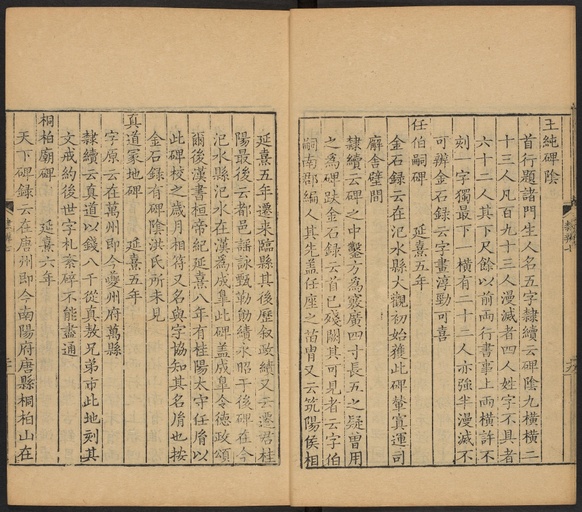 王純碑陰
首行題諸門生人名五字隸續云碑陰九橫橫二
十三人凡百九十三人漫滅者四人姓字不具者
六十二人其下尺餘以前兩行書事上兩橫許不
刻一字獨最下一橫有二十三人亦強半漫滅不
可辨金石錄云字畫淳勁可喜
任伯嗣碑 延熹五年
金石錄云在汜水縣大觀初始獲此碑輦寘運司
廨舍壁間
隸續云碑之中鑿方為竅廣四寸長五之疑曾用
之為碑趺金石錄云首已殘闕其可見者云字伯
嗣南郡編人其先蓋任座之苗胄又云筑陽侯相
延熹五年遷來臨縣其後歷敘政績又云遷君桂
陽最後云都邑謡詠甄勒勛績永昭于後碑在今
汜水縣汜水在漢為成皋此碑蓋成皋令德政頌
爾後漢書桓帝紀延熹八年有桂陽太守任胤以
此碑校之歲月相符又名與字協知其名胤也按
金石錄有碑陰洪氏所未見
真道冢地碑 延熹五年
字原云在萬州即今夔州府萬縣
隸續云真道以錢八千從真敖兄弟市此地刻其
文戒約後世字札紊碎不能盡通
桐柏廟碑 延熹六年
天下碑錄云在唐州即今南陽府唐縣桐柏山在